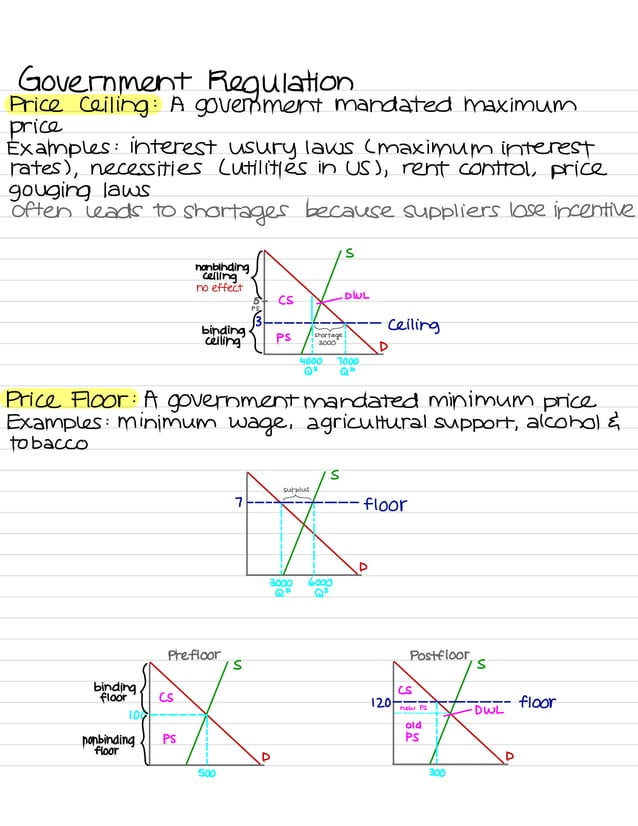 Government Regulation
Price Ceiling: A government mandated maximum
price
Examples: interest usury laws (maximum interest
rates), necessities (utilities in US), rent control, price
gouging laws
often leads to shortages because suppliers lose incentive
S
nonbinding
ceiling
no effect
CS
DWL
5
3
Ceiling
binding
ceiling
PS
shortage
3000
D
4000 7000
Qs QD
Price Floor: A government mandated minimum price
Examples: minimum wage, agricultural support, alcohol &
tobacco
S
surplus
7
floor
D
3000 6000
QD Qs
Prefloor
S
binding
floor
CS
nonbinding
floor
PS
D
500
Postfloor
S
CS
120
floor
new PS
DWL
old
PS
D
300